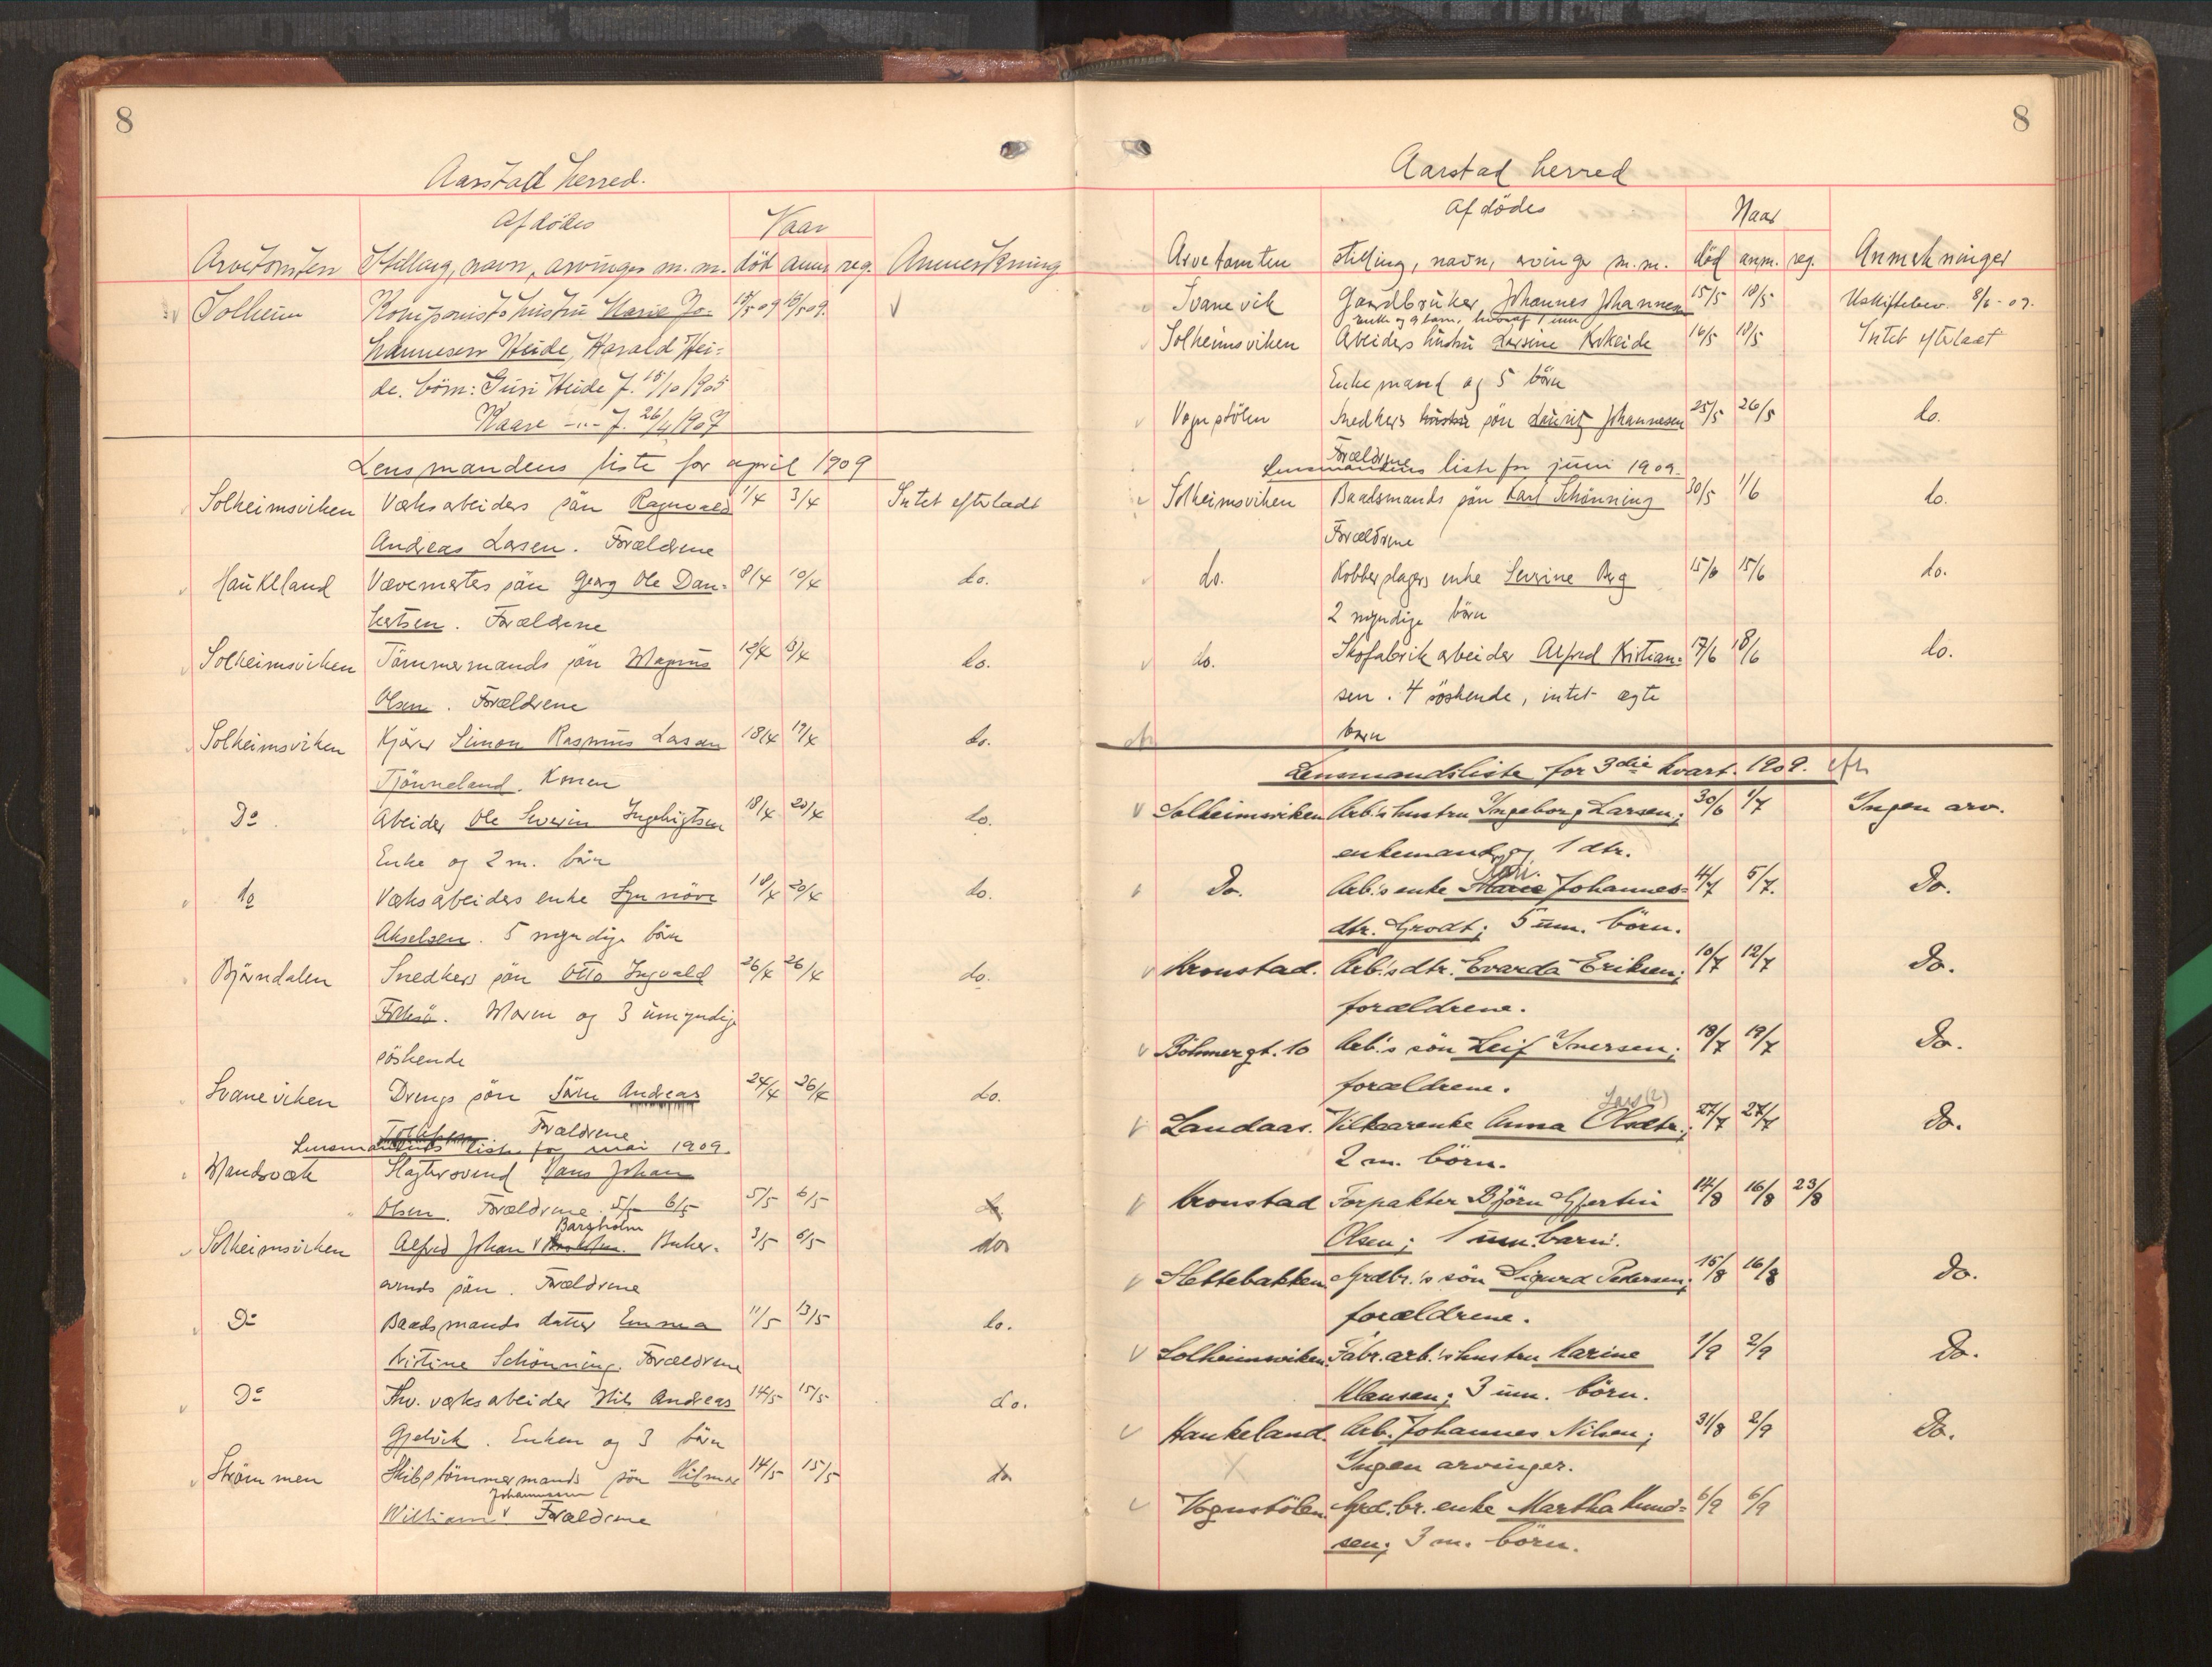 8
Aarstad herred.
Afdödes
Naar
Arvetomten Stilling, navn, arvinger m.m. död anm. reg. Anmerkning
Solheim Komponists hustru Marie Jo- 15/5 09 18/5 09.
hannesen Heide, Harald Hei-
de. börn: Guri Heide f. 15/10 1905
Kaare -"- f. 26/4 1907
Lensmandens liste for april 1909
Solheimsviken Verksarbeiders sön Ragnvald 1/4 3/4 Intet efterladt
Andreas Larsen. Forældrene
Haukeland Vævemesters sön Georg Ole Dan- 8/4 10/4 do.
bertsen. Forældrene
Solheimsviken Tömmermands sön Magnus 12/4 13/4 do.
Olsen. Forældrene
Solheimsviken Kjörer Simon Rasmus Larsen 18/4 19/4 do.
Tjönneland. Konen
Do. Arbeider Ole Severin Ingebrigtsen 18/4 20/4 do.
Enke og 2 m. börn
do Verksarbeiders enke Synnöve 18/4 20/4 do.
Akselsen. 5 myndige börn
Björndalen Snedkers sön Otto Ingvald 26/4 26/4 do.
Moren og 3 umyndige
söskende
Svaneviken Drengs sön Sörn Andreas 24/4 26/4 do.
Forældrene
Lensmandens liste for mai 1909.
Mandsverk Slagtersvend Hans Johan
Olsen. Forældrene. 5/5 6/5 5/5 6/5 do
Bargholm
Solheimsviken Alfred Johan Buker- 3/5 6/5 do
svends sön. Forældrene
Do Baadsmands datter Emma 11/5 13/5 do.
Kristine Schönning. Forældrene
Do Fhv. verksarbeider Nils Andreas 14/5 15/5 do.
Gjelvik. Enken og 3 börn
Strömmen Skibstömmermands sön Hilmar 14/5 15/5 do
Johannessen
William Forældrene
8
Aarstad herred
Afdödes
Naar
Arvetomten stilling, navn, arvinge m.m. död anm. reg. Anmerkninger
Svanevik Gaardbruker Johannes Johannesen 15/5 18/5 Uskiftebev. 8/6-09.
Enke og 9 barn, hvoraf 1 um
Solheimsviken Arbeiders hustru Larsine Askeide 16/5 18/5 Intet efterladt
Enkemand og 5 börn
Vognstölen Snedkers hustru sön Lauritz Johannesen 25/5 26/5 do.
Forældrene
Lensmandens liste for juni 1909.
Solheimsviken Baadsmands sön Karl Schönning 30/5 1/6 do.
Forældrene
do. Kobberslagers enke Severine Berg 15/6 15/6 do.
2 myndige börn
do. Skofabrikarbeider Alfred Kristian- 17/6 18/6 do.
sen. 4 söskende, intet ægte
barn
Lensmandsliste for 3die kvart. 1909.
Solheimsviken Arb.'s hustru Ingeborg Larsen; 30/6 1/7 Ingen arv.
enkemand og 1 dtr.
Do. Arb.'s enke Marie Johannes- 4/7 5/7. Do.
dtr. Grodt; 5 um. börn.
Kronstad. Arb.'s dtr. Evarda Eriksen; 10/7 12/7 Do.
forældrene.
Böhmergt. 10 Arb.'s sön Leif Iversen; 18/7 19/7 Do.
forældrene.
Lars(2)
Landaas. Vilkaarenke Anna Olsdtr.; 27/7 27/7 Do.
2 m. börn.
Kronstad Forpakter Björn Gjertin 14/8 16/8 23/8
Olsen; 1 um. barn.
Slettebakken Grdbr.'s sön Sigurd Pedersen; 15/8 16/8 Do.
forældrene.
Solheimsviken. Fabr.arb.'s hustru Karine 1/9 2/9 Do.
Klausen; 3 um. börn.
Haukeland. Arb. Johannes Nilsen; 31/8 2/9 Do.
Ingen arvinger.
Vognstölen. Grd.br. enke Martha Knud- 6/9 6/9
sen; 3 m. börn.